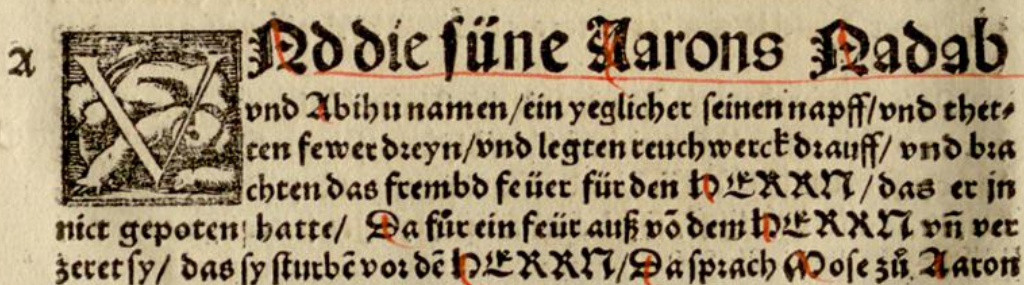 A VNd die süne Aarons Nadab
vnd Abihu namen/ein yeglicher seinen napff/vnd thet⸗
ten fewer dreyn/vnd legten reuchwerck drauff/ vnd bra
chten das frembd feüer für den HERRN/das er jn
nict gepoten hatte/ Da fůr ein feür auß võ dem HERRN vñ ver
zeret sy/ das sy sturbẽ vor dẽ HERRN/Da sprach Mose zů Aaron